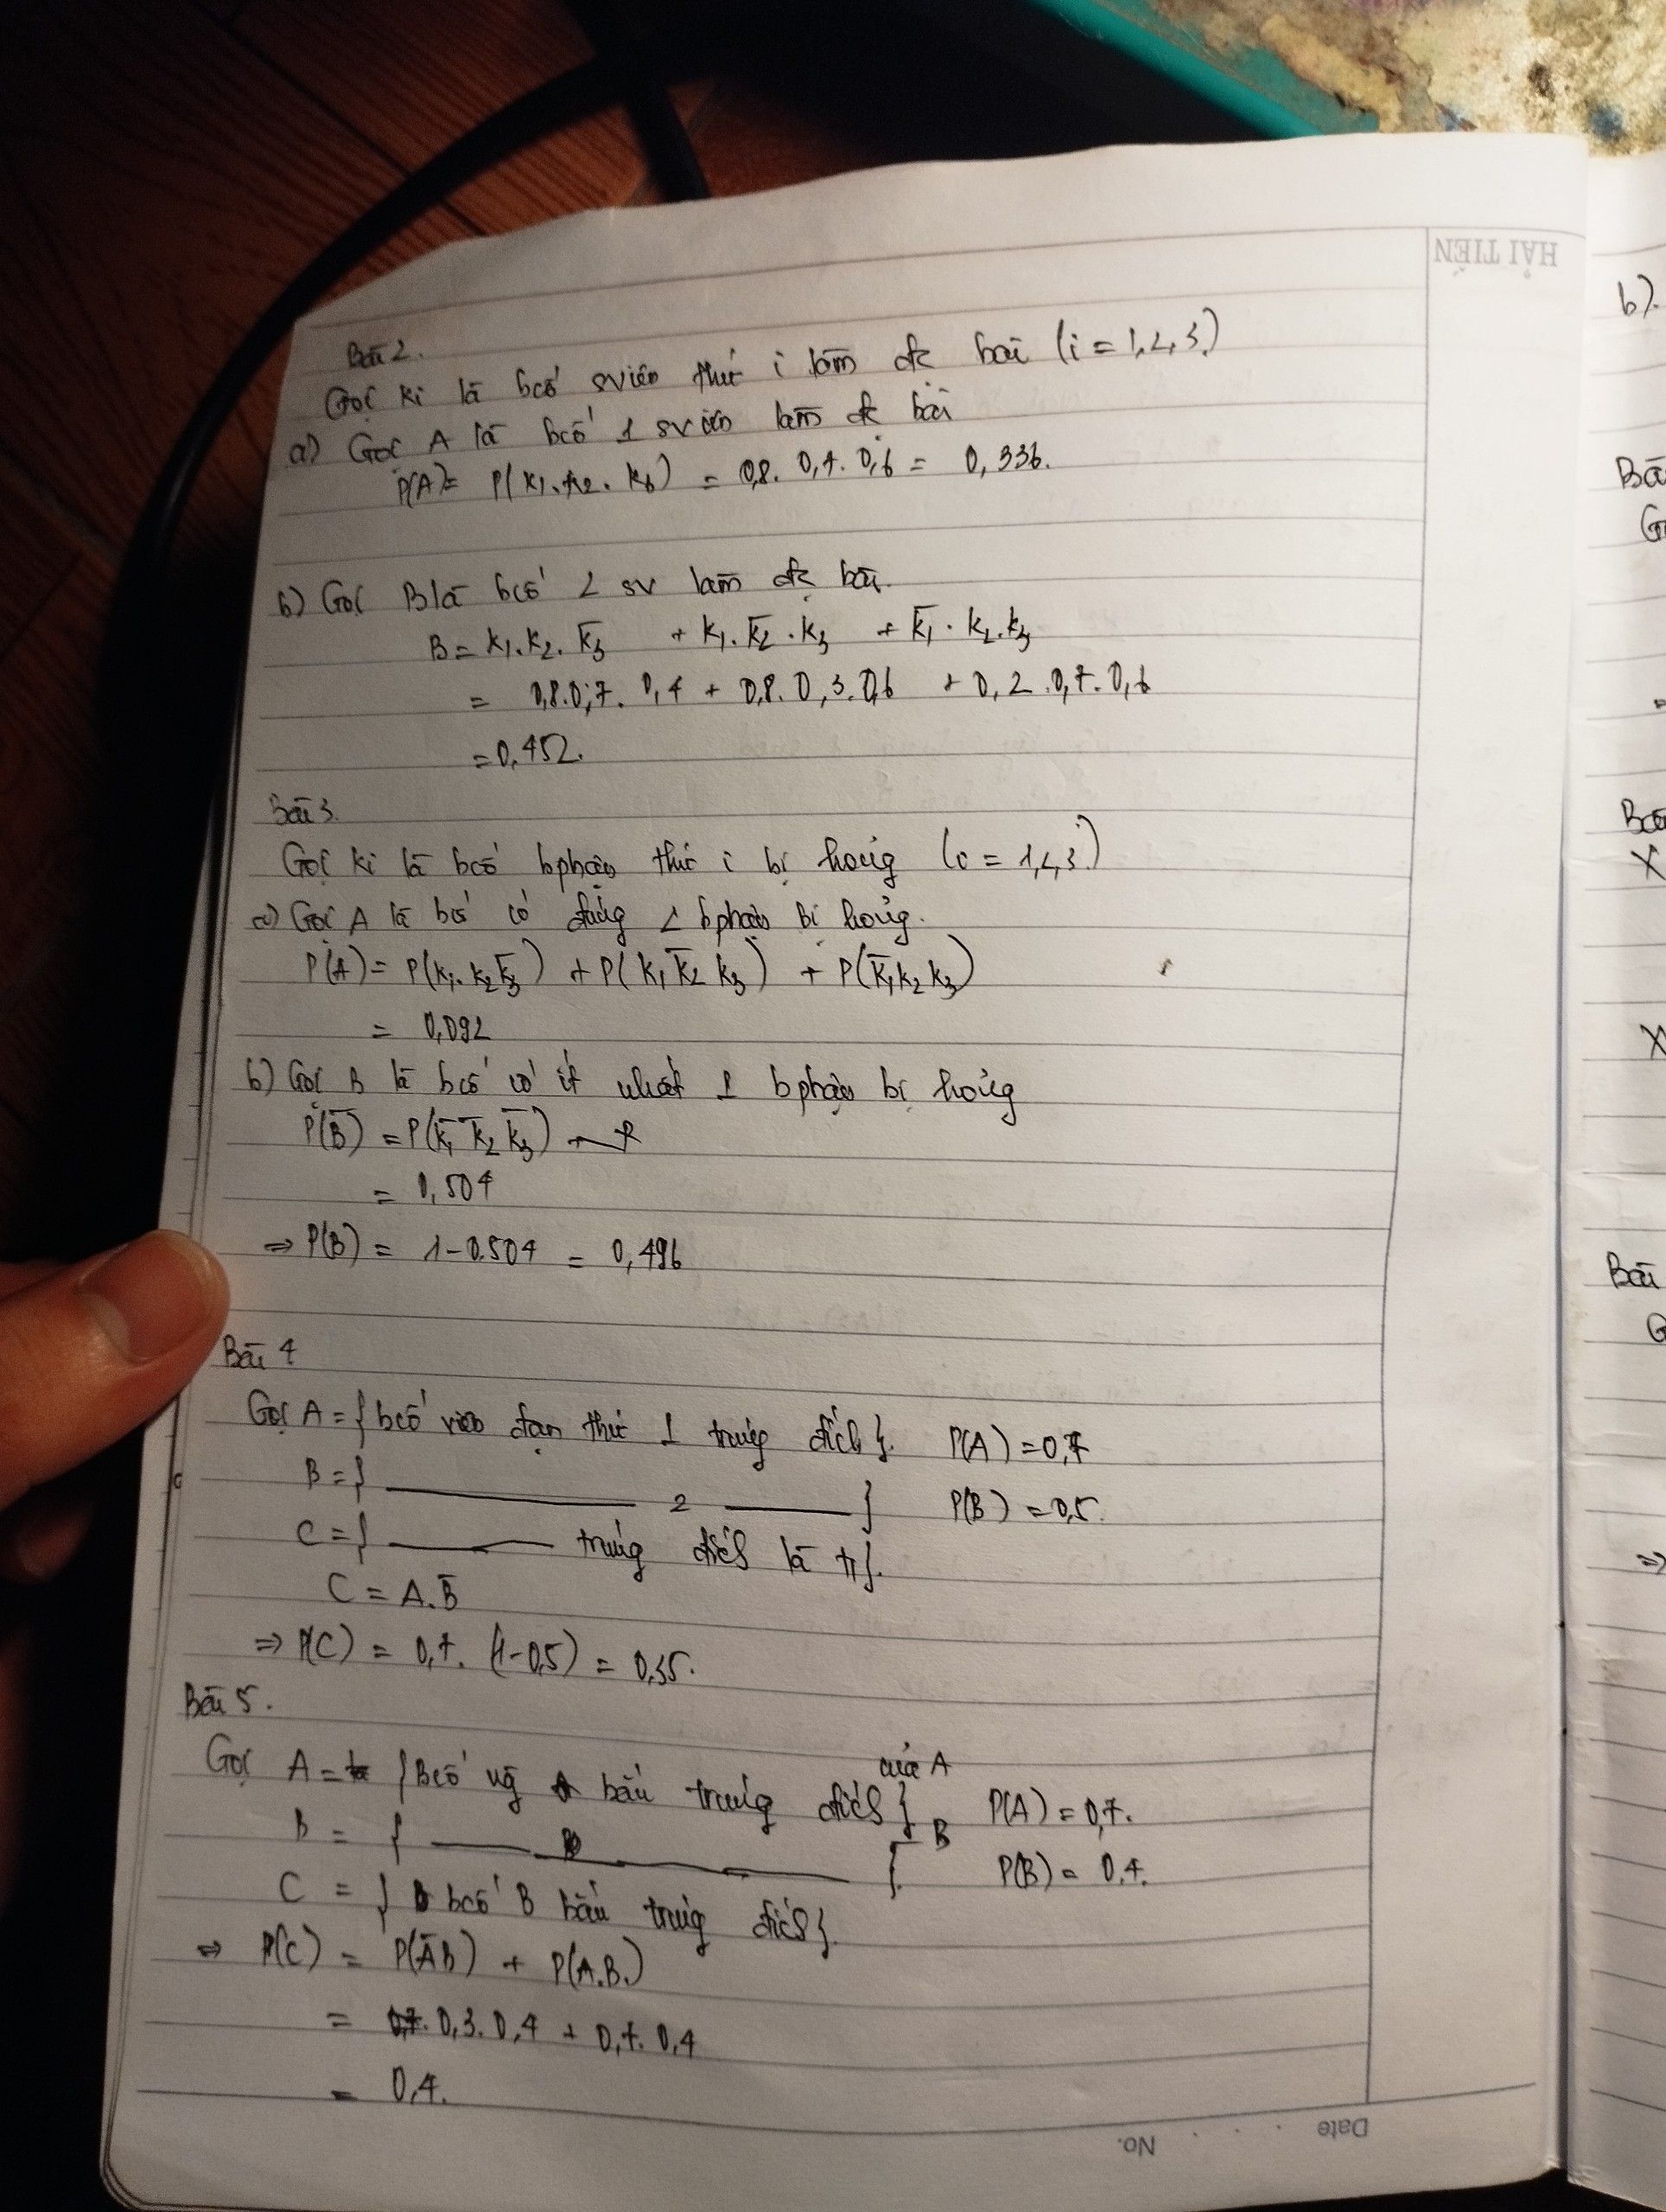 HẢI TIẾN
Bài 2.
Gọi Ki là bcố sviên thứ i làm đc bài (i = 1,2,3)
a) Gọi A là bcố 1 sviên làm đc bài
P(A) = P(K₁.K₂. ) = 0,8. 0,7. 0,6 = 0,336.
b) Gọi B là bcố 2 sv làm đc bài.
B = K₁.K₂.K̅₃ + K₁.K̅₂.K₃ + K̅₁.K₂.K₃
= 0,8.0,7. 0,4 + 0,8. 0,3. 0,6 + 0,2 .0,7. 0,6
= 0,452.
Bài 3.
Gọi Ki là bcố bphận thứ i bị hỏng (i = 1,2,3)
a) Gọi A là bcố có đúng 2 bphận bị hỏng.
P(A) = P(K₁.K₂K̅₃) + P(K₁K̅₂K₃) + P(K̅₁K₂K₃)
= 0,092
b) Gọi B là bcố có ít nhất 1 bphận bị hỏng
P(B̅) = P(K̅₁K̅₂K̅₃)
= 0,504
⇒ P(B) = 1 - 0.504 = 0,496
Bài 4
Gọi A = {bcố viên đạn thứ 1 trúng đích}. P(A) = 0,7
B = { 2 } P(B) = 0,5.
C = { trúng đích là }.
C = A.B̅
⇒ P(C) = 0,7. (1-0,5) = 0,35.
Bài 5.
của A
Gọi A = {Bcố bắn trúng đích} P(A) = 0,7.
B = { } B P(B) = 0,4.
C = { bcố B bắn trúng đích}.
⇒ P(C) = P(A̅B) + P(A.B.)
= 0,3. 0,4 + 0,7. 0,4
= 0,4.
No.
Date
b).
Bài
X
X
Bài
G
⇒